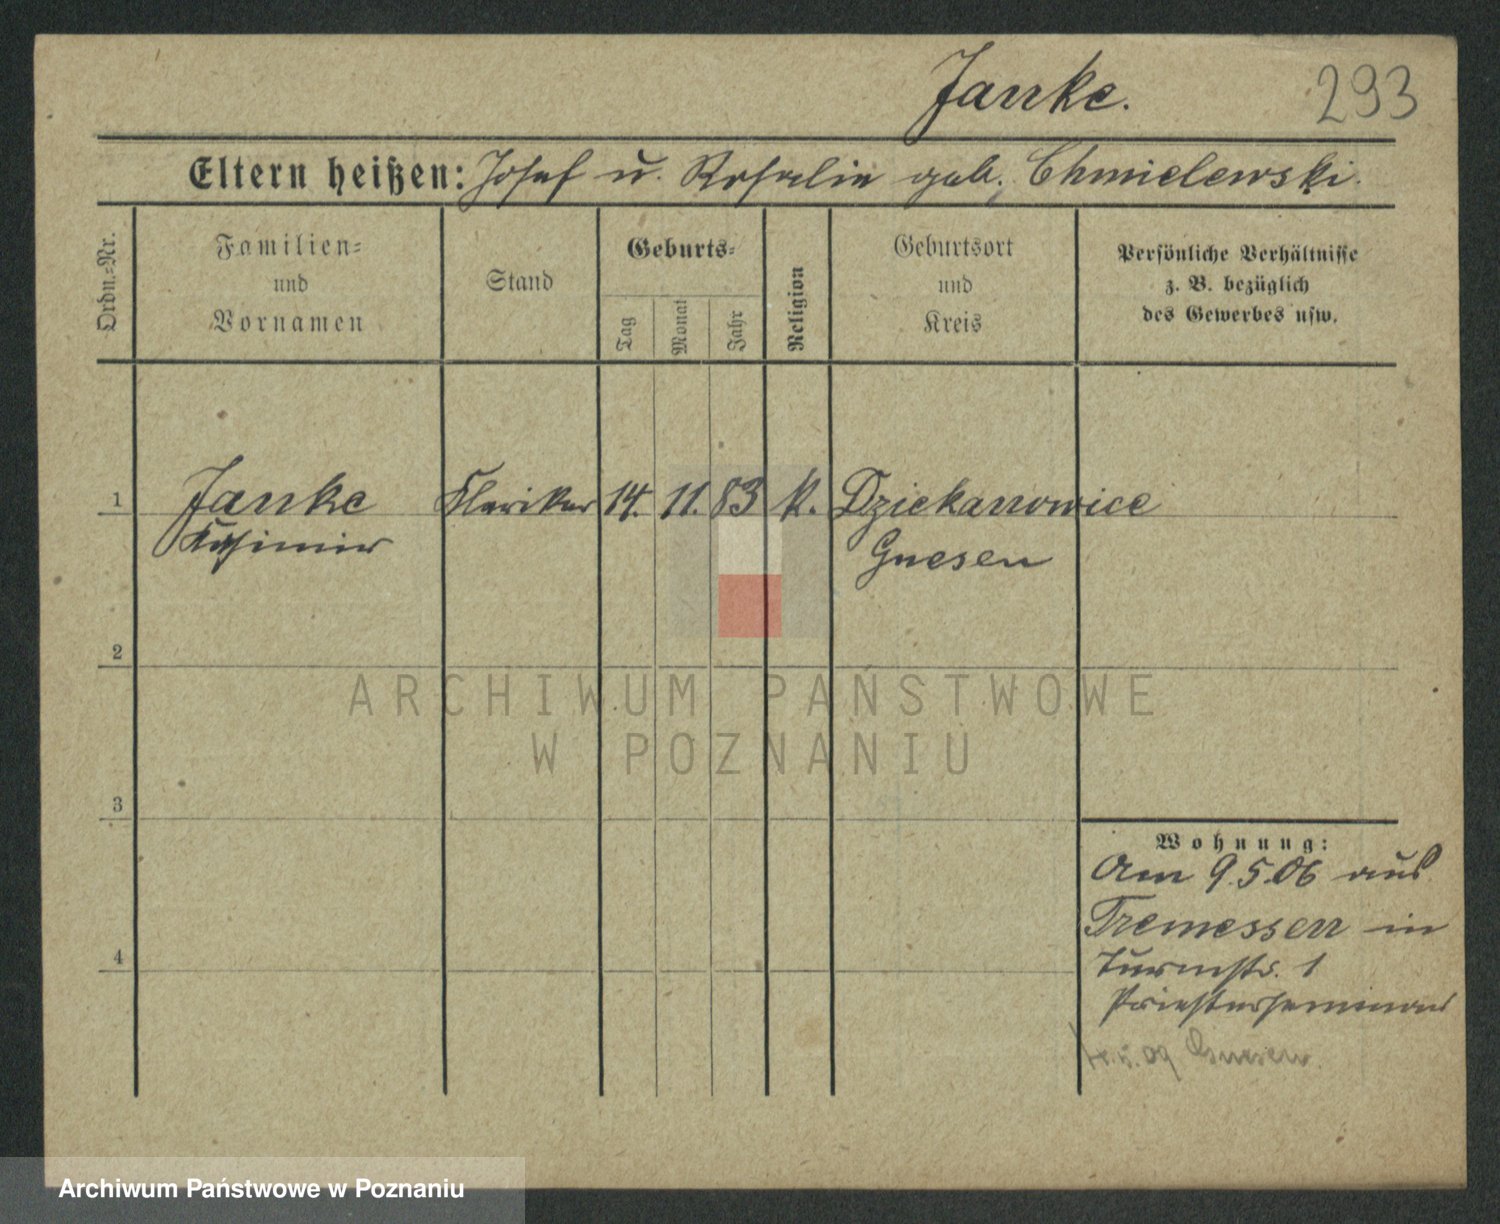 Janke.
293
Eltern heißen: Josef u. Rosalie geb. Chmielewski.
Ordn.=Nr.
Familien=
und
Vornamen
Stand
Geburts=
Tag
Monat
Jahr
Religion
Geburtsort
und
Kreis
Persönliche Verhältnisse
z. B. bezüglich
des Gewerbes usw.
1 Janke Kleriker 14. 11. 83 k. Dziekanowice
Kasimir Gnesen
2
3
4
Wohnung:
Am 9.5.06 aus
Tremessen in
Turmstr. 1
Priesterseminar
09 Gnesen.
ARCHIWUM PAŃSTWOWE
W POZNANIU
Archiwum Państwowe w Poznaniu